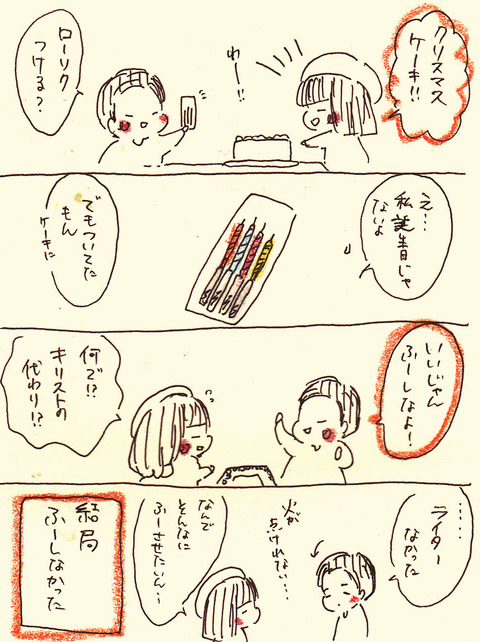 クリスマス
ケーキ!!
わー!!
ローソク
つける?
え…
私誕生日じゃ
ないよ
でもついてた
もん
ケーキに
いいじゃん
ふーしなよ!
何で!?
キリストの
代わり!?
……
ライター
なかった
火が
つけれない…
なんで
そんなに
ふーさせたいん〜
結局
ふーしなかった